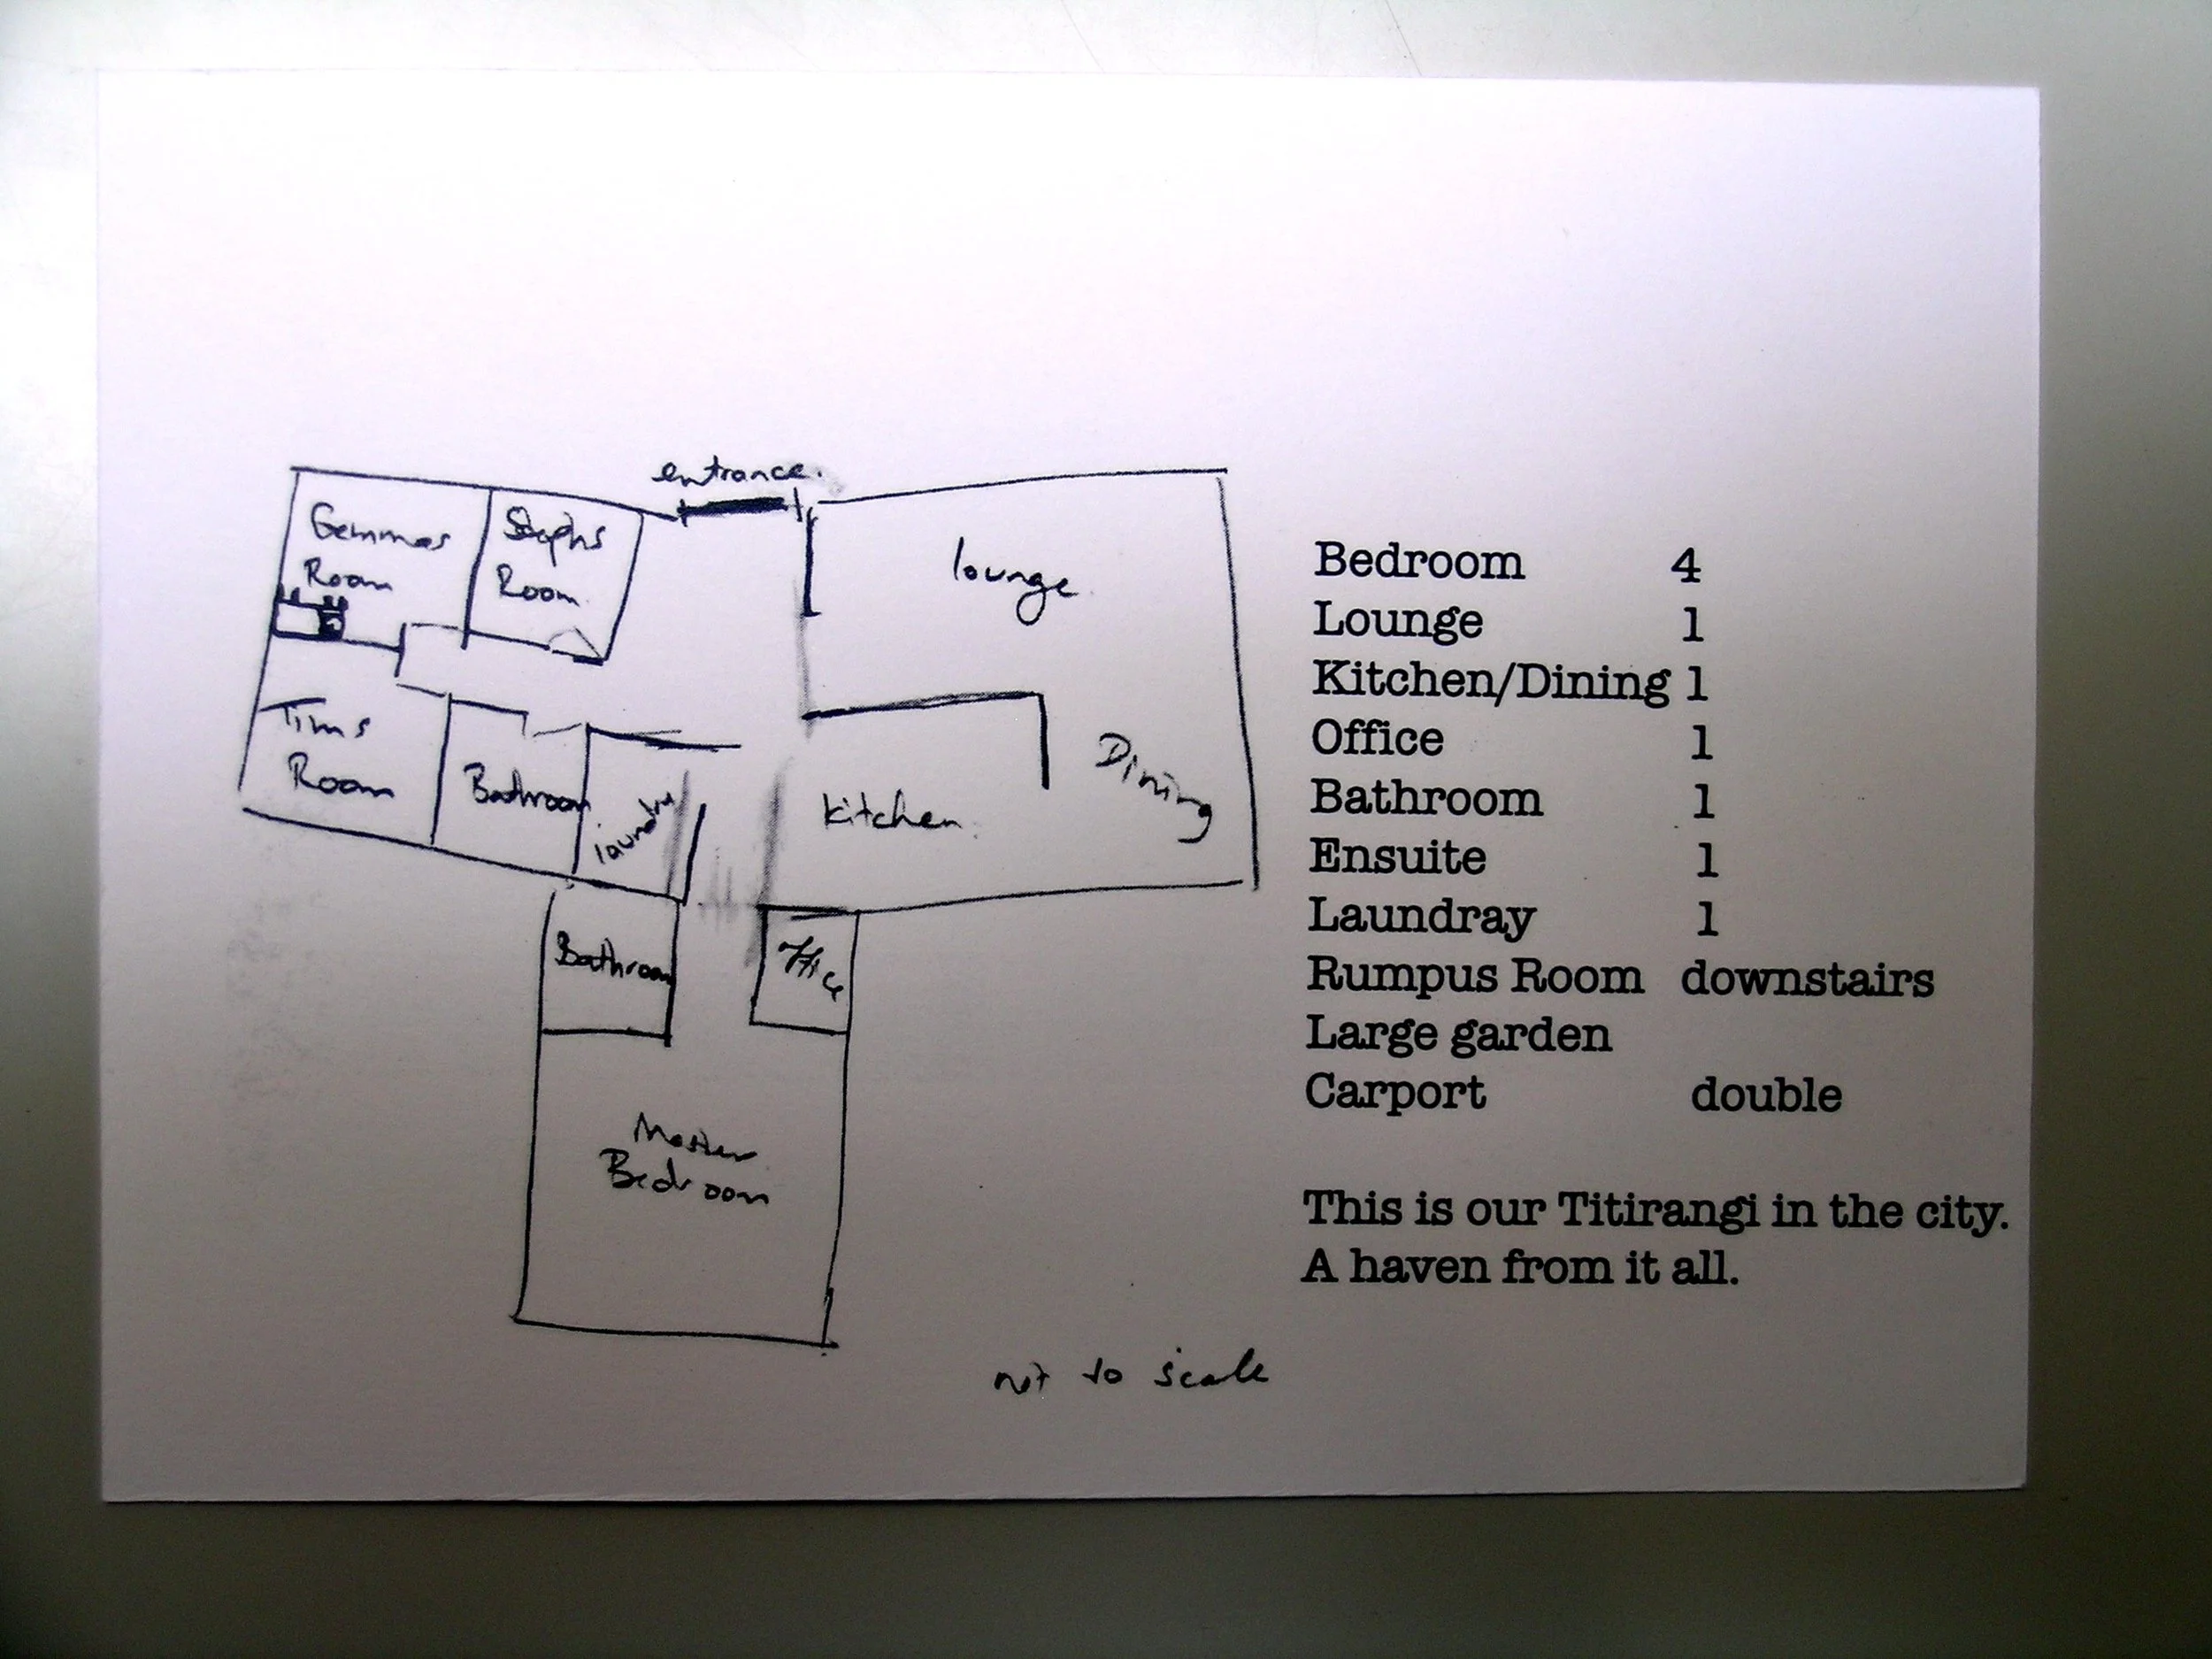 entrance.
Gemmas
Room
Stephs
Room
lounge
Tims
Room
Bathroom
laundry
Kitchen
Dining
Bathroom
Office
Master
Bedroom
not to scale
Bedroom 4
Lounge 1
Kitchen/Dining 1
Office 1
Bathroom 1
Ensuite 1
Laundray 1
Rumpus Room downstairs
Large garden
Carport double
This is our Titirangi in the city.
A haven from it all.